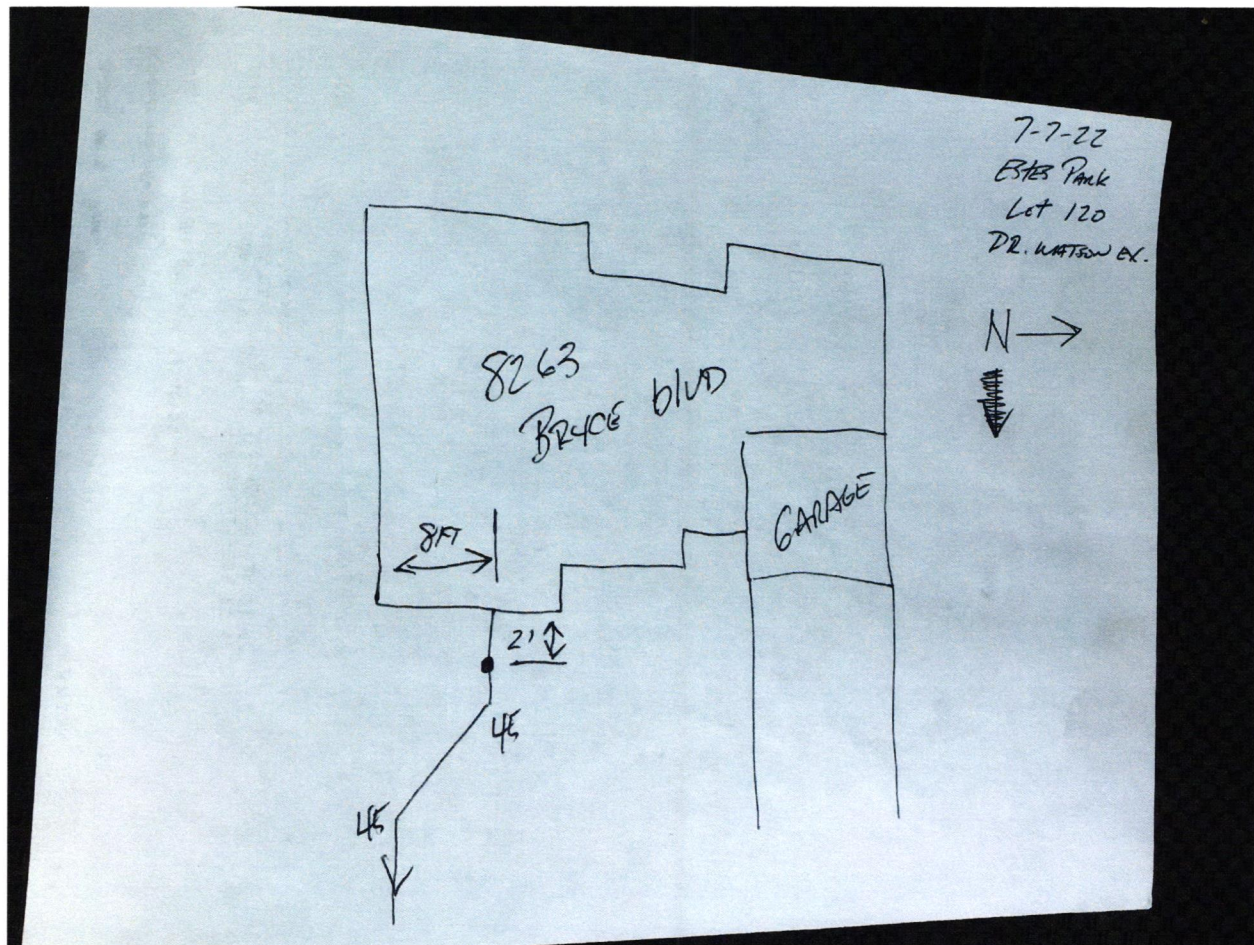 7-7-22
ESTES PARK
Lot 120
DR. WATSON EX.
N
8263
BRYCE blVD
GARAGE
8FT
2'
45
45